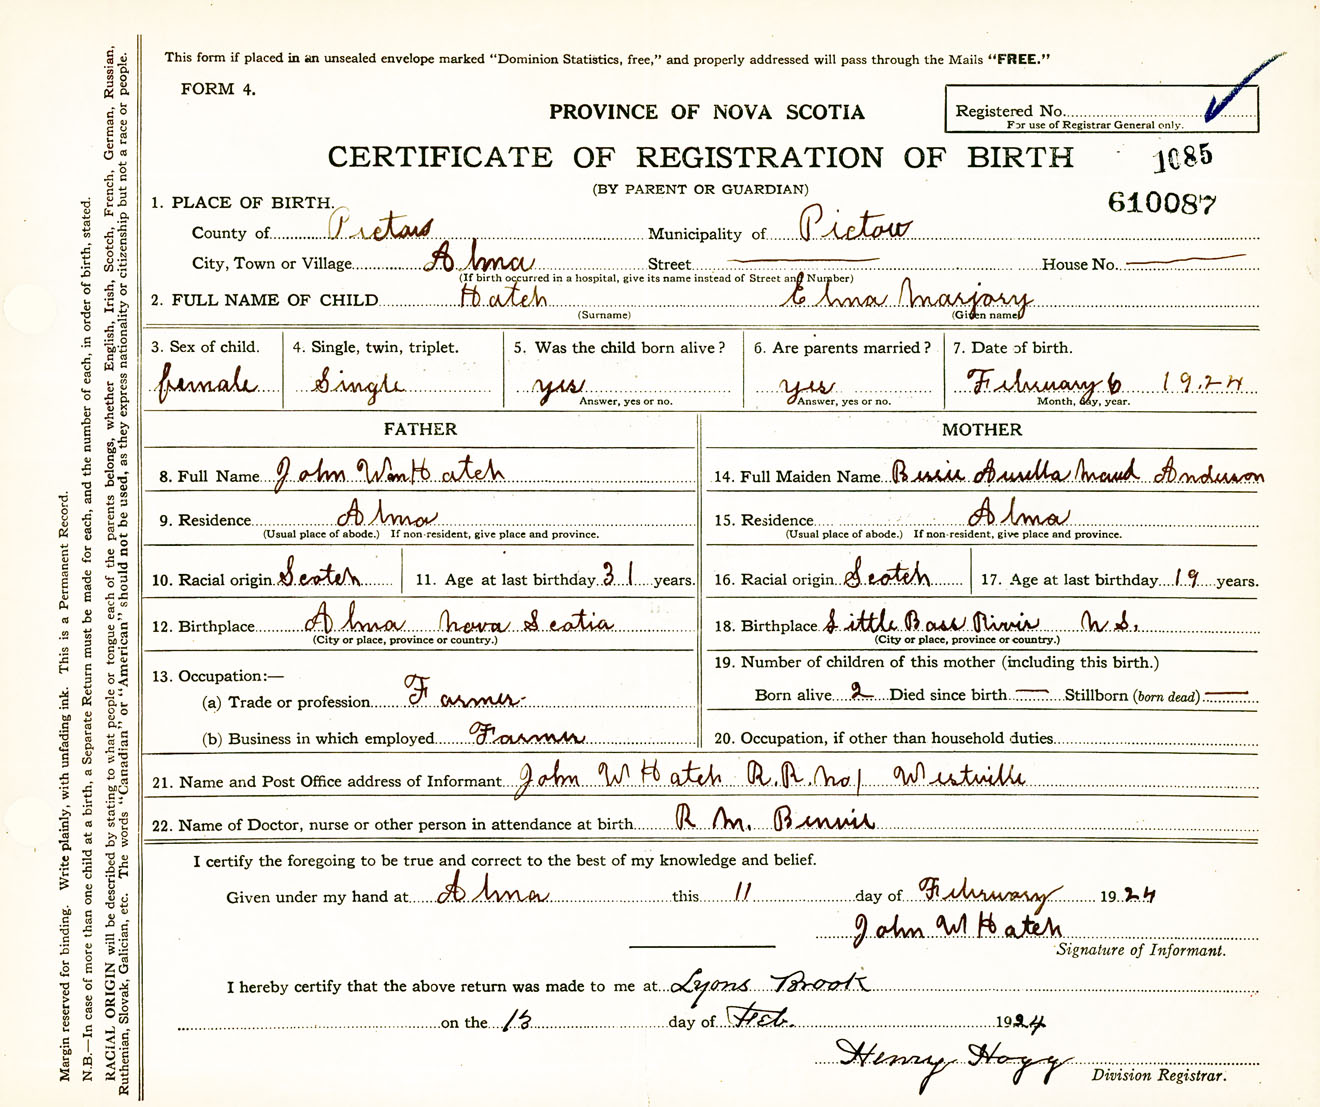 This form if placed in an unsealed envelope marked "Dominion Statistics, free," and properly addressed will pass through the Mails "FREE."
FORM 4.
PROVINCE OF NOVA SCOTIA
Registered No.
For use of Registrar General only.
CERTIFICATE OF REGISTRATION OF BIRTH
1085
(BY PARENT OR GUARDIAN)
610087
1. PLACE OF BIRTH.
County of Pictou Municipality of Pictou
City, Town or Village Alma Street House No.
(If birth occurred in a hospital, give its name instead of Street and Number)
2. FULL NAME OF CHILD Hatch Elma Marjory
(Surname) (Given name)
3. Sex of child. 4. Single, twin, triplet. 5. Was the child born alive? 6. Are parents married? 7. Date of birth.
female Single yes yes February 6 1924
Answer, yes or no. Answer, yes or no. Month, day, year.
FATHER MOTHER
8. Full Name John Wm Hatch 14. Full Maiden Name Bessie Maud Anderson
9. Residence Alma 15. Residence Alma
(Usual place of abode.) If non-resident, give place and province. (Usual place of abode.) If non-resident, give place and province.
10. Racial origin Scotch 11. Age at last birthday 31 years. 16. Racial origin Scotch 17. Age at last birthday 19 years.
12. Birthplace Alma Nova Scotia 18. Birthplace Little Bass River N S.
(City or place, province or country.) (City or place, province or country.)
13. Occupation:— 19. Number of children of this mother (including this birth.)
(a) Trade or profession Farmer Born alive 2 Died since birth Stillborn (born dead)
(b) Business in which employed Farmer 20. Occupation, if other than household duties
21. Name and Post Office address of Informant John W Hatch R.R. No 1 Westville
22. Name of Doctor, nurse or other person in attendance at birth R M. Benvie
I certify the foregoing to be true and correct to the best of my knowledge and belief.
Given under my hand at Alma this 11 day of February 1924
John W Hatch
Signature of Informant.
I hereby certify that the above return was made to me at Lyons Brook
on the 13 day of Feb. 1924
Henry Hogg
Division Registrar.
Margin reserved for binding. Write plainly, with unfading ink. This is a Permanent Record.
N.B.—In case of more than one child at a birth, a Separate Return must be made for each, and the number of each, in order of birth, stated.
RACIAL ORIGIN will be described by stating to what people or tongue each of the parents belongs, whether English, Irish, Scotch, French, German, Russian,
Ruthenian, Slovak, Galician, etc. The words "Canadian" or "American" should not be used, as they express nationality or citizenship but not a race or people.